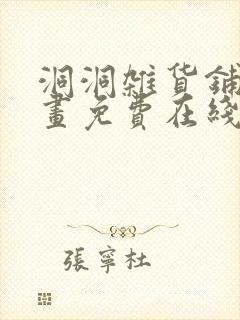 洞洞雜貨鋪
畫免費在綫
張寧杜